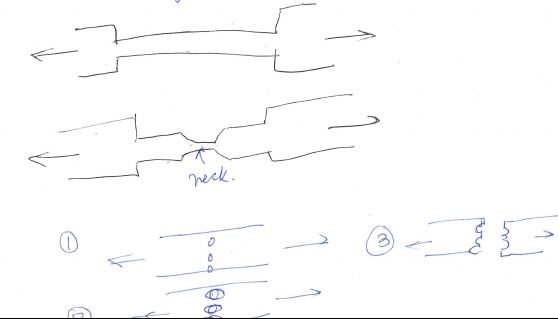 neck.
①
③
②